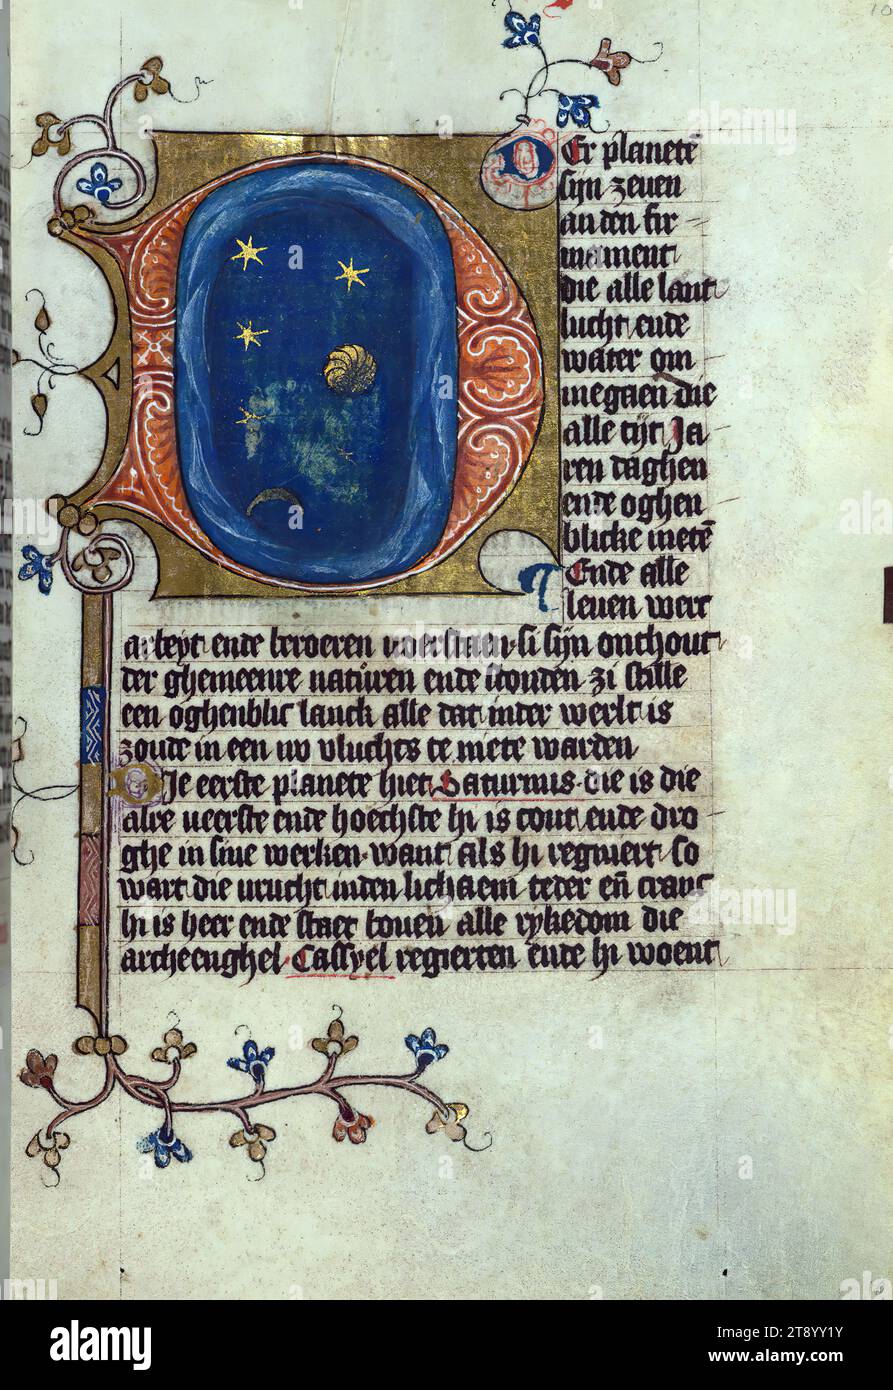 10
DEr planetē
sijn zeuen
an den fir
mament
die alle lant
lucht ende
water om
megaen die
alle tijt Ja
ren daghen
ende oghen
blicke metē
Ende alle
leuen wert
arbeyt ende beroeren voerstaen · si sijn onthout
der ghemeenre naturen ende stonden zi stille
een oghenblic lanck alle dat inder werlt is
zoude in een uv vluchts te mete warden
DJe eerste planete hiet Saturnus · die is die
alre ueerste ende hoechste hi is cout ende dro
ghe in sine werken · want als hi regniert so
wart die urucht inden lichaem teder eñ cranc
hi is heer ende staet bouen alle rykedom die
archeenghel · Cassyel regierten ende hi woent
a
alamy
alamy
Image ID: 2T8YY1Y
www.alamy.com